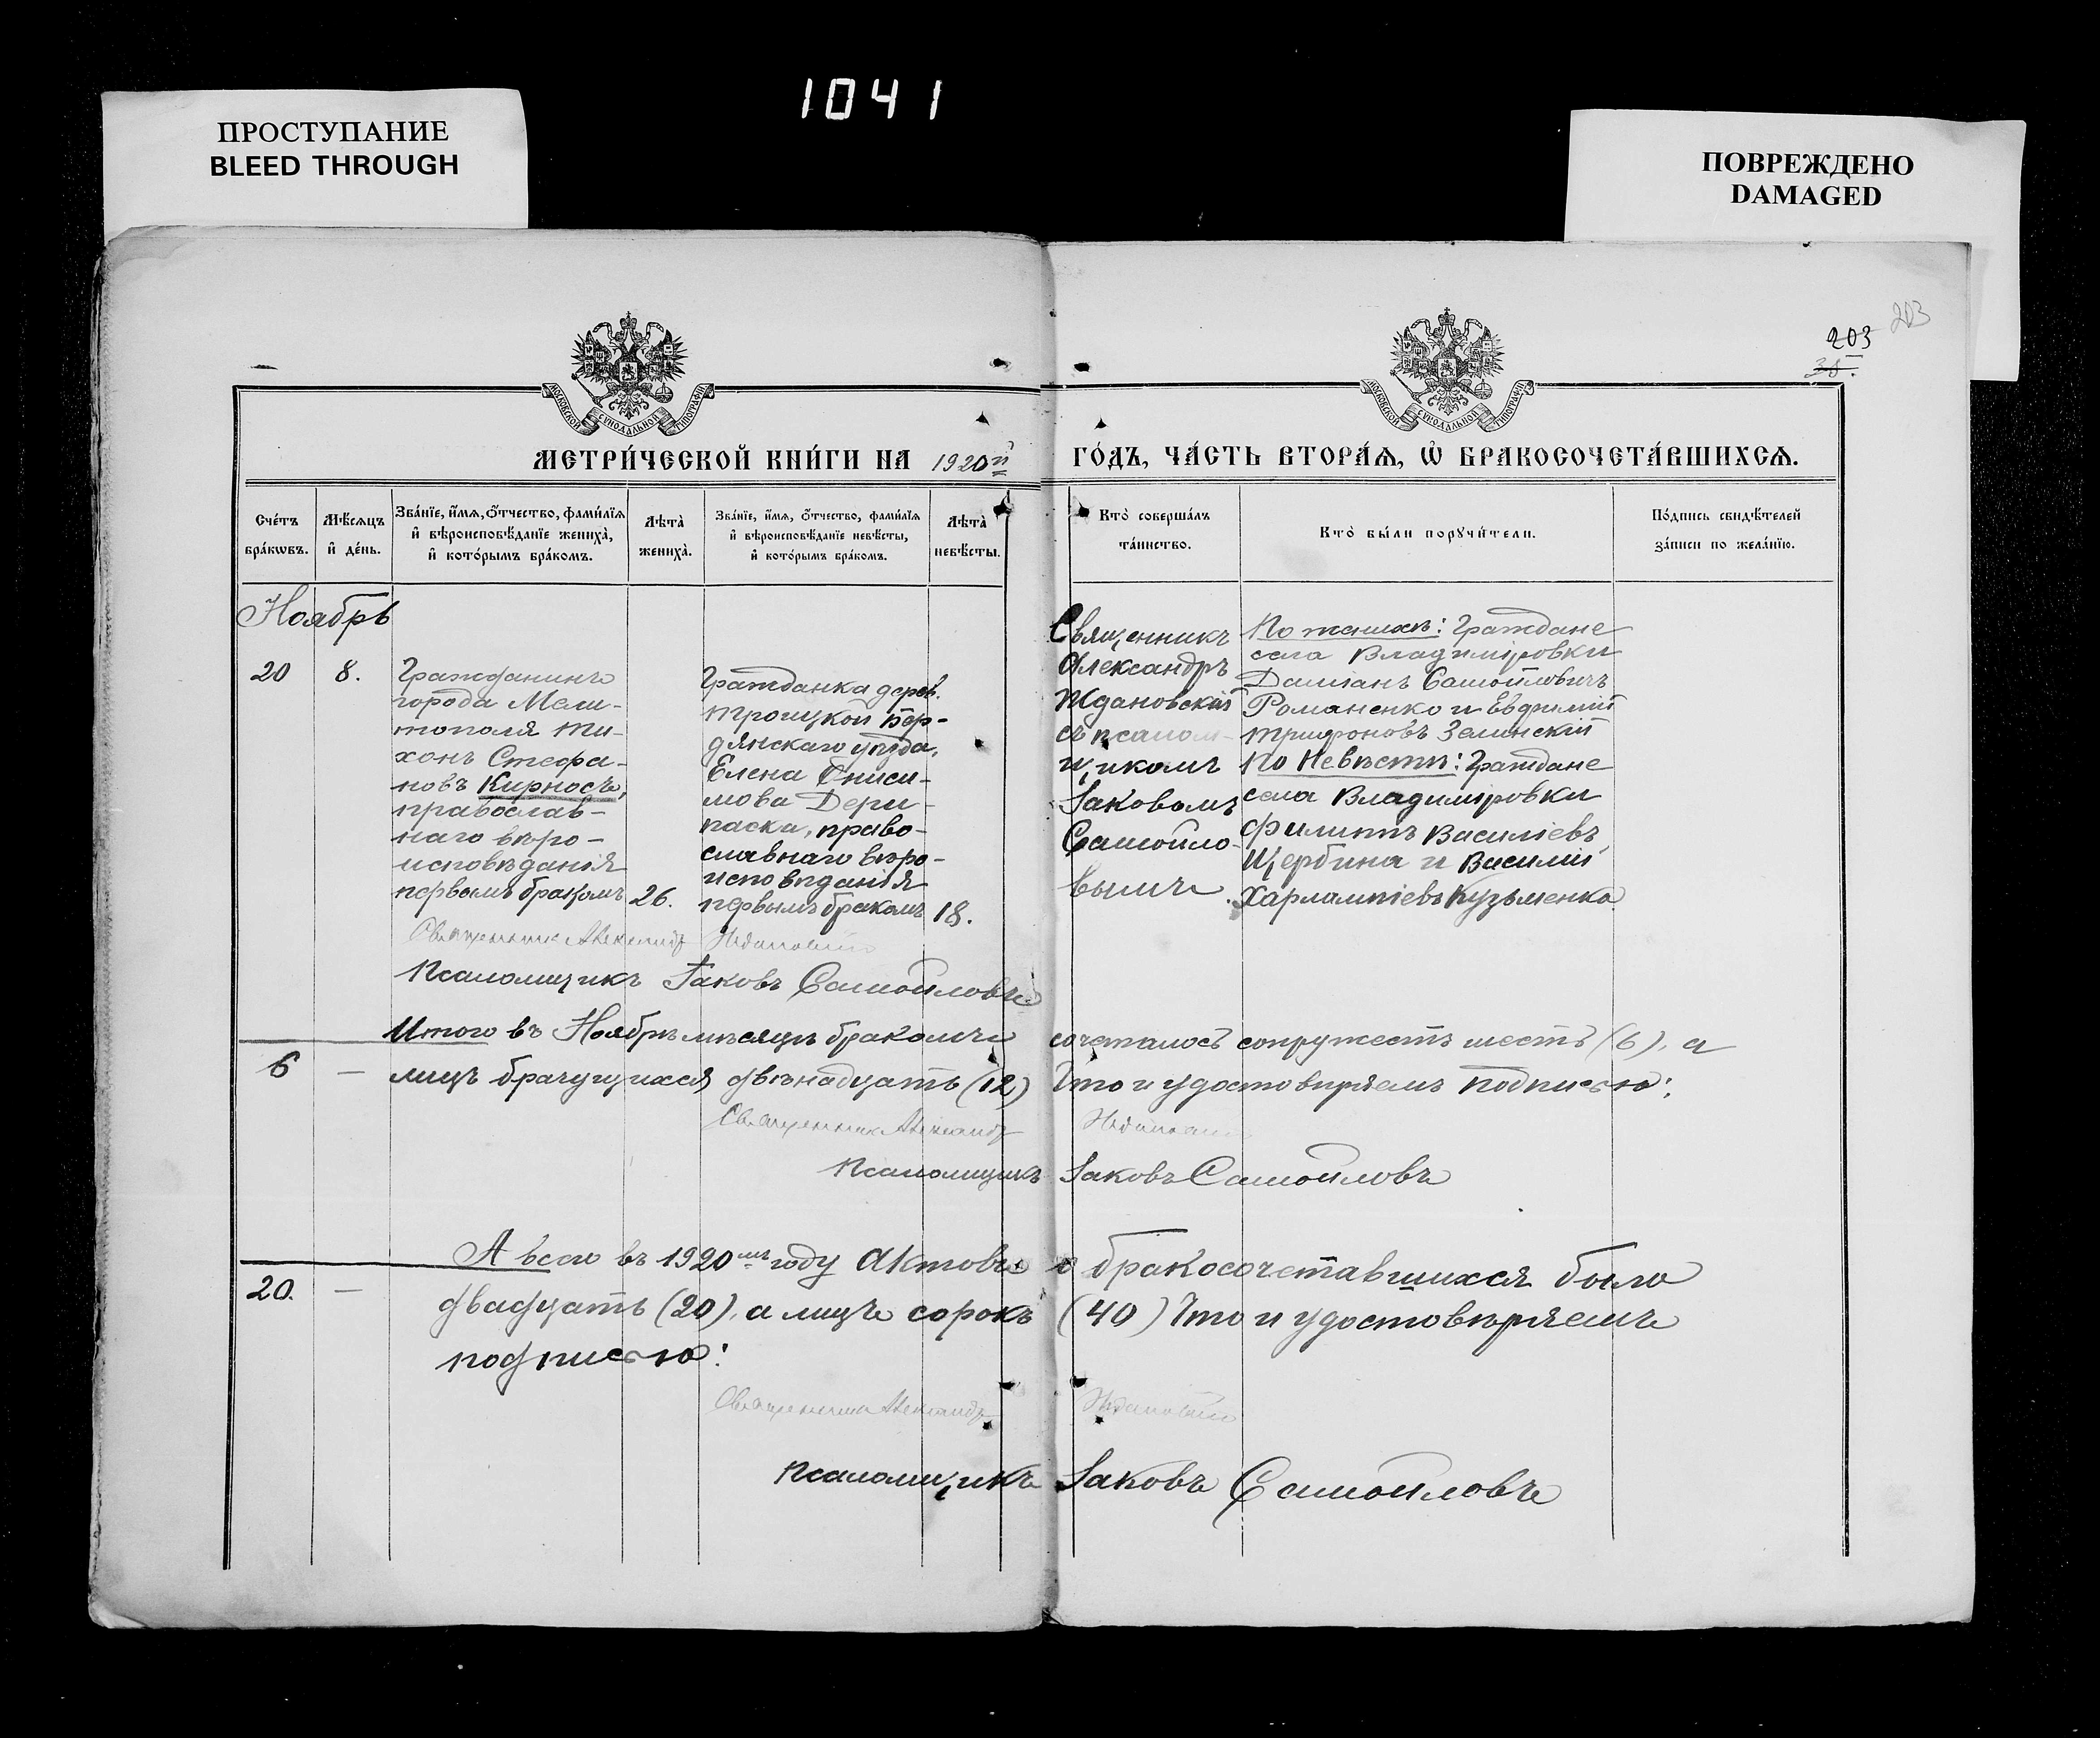 1041
ПРОСТУПАНИЕ
BLEED THROUGH
ПОВРЕЖДЕНО
DAMAGED
203
203
38.
МОСКОВСКОЙ СѴНОДАЛЬНОЙ ТИПОГРАФІИ
МОСКОВСКОЙ СѴНОДАЛЬНОЙ ТИПОГРАФІИ
МЕТРИ́ЧЕСКОЙ КНИ́ГИ НА 1920й
ГО́ДЪ, ЧА́СТЬ ВТОРА́Ѧ, Ѡ҆ БРАКОСОЧЕТА́ВШИХСѦ.
Сче́тъ
бра́кѡвъ.
Мѣ́сѧцъ
и҆ де́нь.
Зва́нїе, и҆́мѧ, ѻ҆́тчество, фами́лїѧ
и҆ вѣроисповѣ́данїе жениха̀,
и҆ кото́рымъ бра́комъ.
Лѣта̀
жениха̀.
Зва́нїе, и҆́мѧ, ѻ҆́тчество, фами́лїѧ
и҆ вѣроисповѣ́данїе невѣ́сты,
и҆ кото́рымъ бра́комъ.
Лѣта̀
невѣ́сты.
Кто̀ соверша́лъ
та́инство.
Кто̀ бы́ли порꙋчи́тели.
По́дпись свидѣ́телей
за́писи по жела́нїю.
Ноябрь
20
8.
Гражданинъ
города Мели-
тополя Ти-
хонъ Стефа-
новъ Кирносъ,
православ-
наго вѣро-
исповѣданія
первымъ бракомъ
26.
Гражданка дерев.
Троицкой Бер-
дянскаго уѣзда,
Елена Ониси-
мова Дери-
паска, право-
славнаго вѣро-
исповѣданія
первымъ бракомъ
18.
Священникъ
Александръ
Ждановскій
съ псалом-
щикомъ
Іаковомъ
Самойло-
вымъ.
По женихѣ: Граждане
села Владиміровки
Даміанъ Самойловичъ
Романенко и Евфимій
Трифоновъ Зелинскій
По Невѣстѣ: Граждане
села Владиміровки
Филиппъ Василіевъ
Щербина и Василій
Харлампіевъ Кузьменко
Священникъ Александръ Ждановскій
Псаломщикъ Іаковъ Самойловъ
Итого въ Ноябрѣ мѣсяцѣ бракомъ сочеталось супружествъ шесть (6), а
6 — лицъ брачущихся двѣнадцать (12) Что и удостовѣряемъ подписью:
Священникъ Александръ Ждановскій
Псаломщикъ Іаковъ Самойловъ
А всего въ 1920мъ году актовъ о бракосочетавшихся было
20. — двадцать (20), а лицъ сорокъ (40) Что и удостовѣряемъ
подписью:
Священникъ Александръ Ждановскій
Псаломщикъ Іаковъ Самойловъ